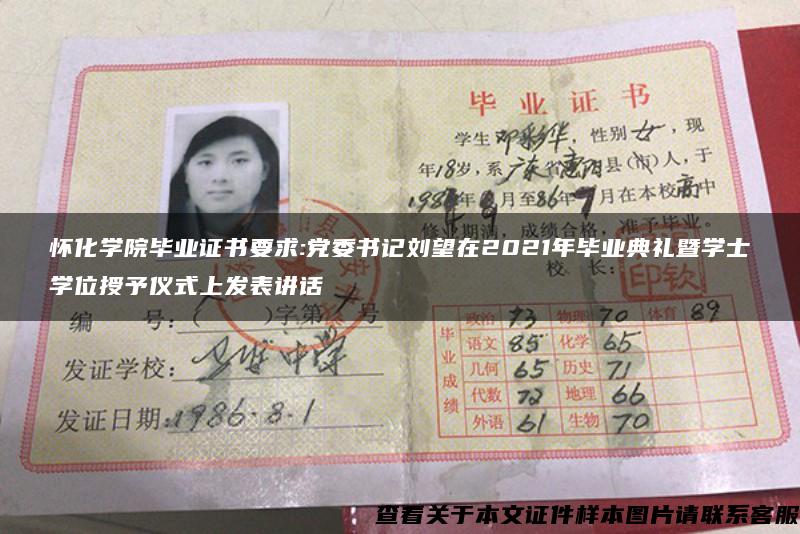 毕业证书
学生邓彩华，性别女，现
年18岁，系广东省惠阳县（市）人，于
198 年9月至86年7月在本校高中
修业期满，成绩合格，准予毕业。
怀化学院毕业证书要求:党委书记刘望在2021年毕业典礼暨学士
学位授予仪式上发表讲话
校长：
印钦
编 号:( )字第 号
发证学校: 中学
发证日期:1986.8.1
毕业成绩
政治 73 物理 70 体育 89
语文 85 化学 65
几何 65 历史 71
代数 72 地理 66
外语 61 生物 70
查看关于本文证件样本图片请联系客服